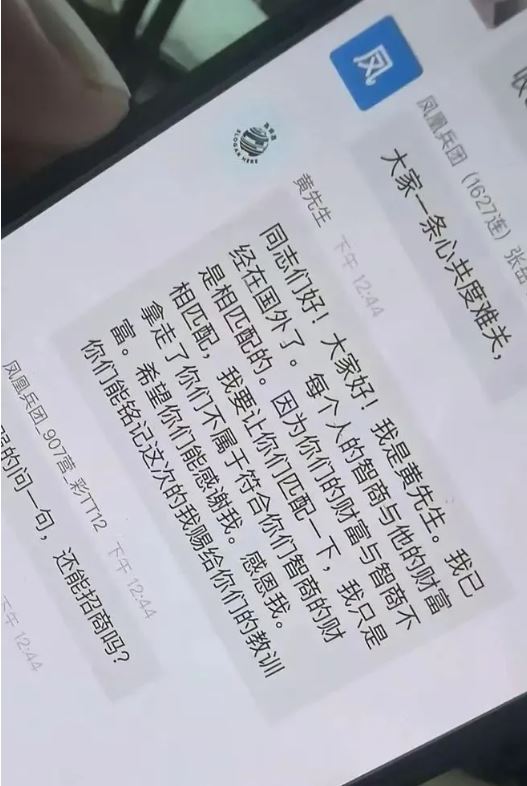 凤
凤凰兵团（1627连）张
大家一条心共度难关，
SLOGAN HERE
黄先生 下午 12:44
同志们好！大家好！我是黄先生。我已
经在国外了。每个人的智商与他的财富
是相匹配的。因为你们的财富与智商不
相匹配，我要让你们匹配一下，我只是
拿走了你们不属于符合你们智商的财
富。希望你们能感谢我。感恩我。
你们能铭记这次的我赐给你们的教训
凤凰兵团_907营_彩TT12 下午 12:44
的问一句，还能招商吗？
下午 12:44